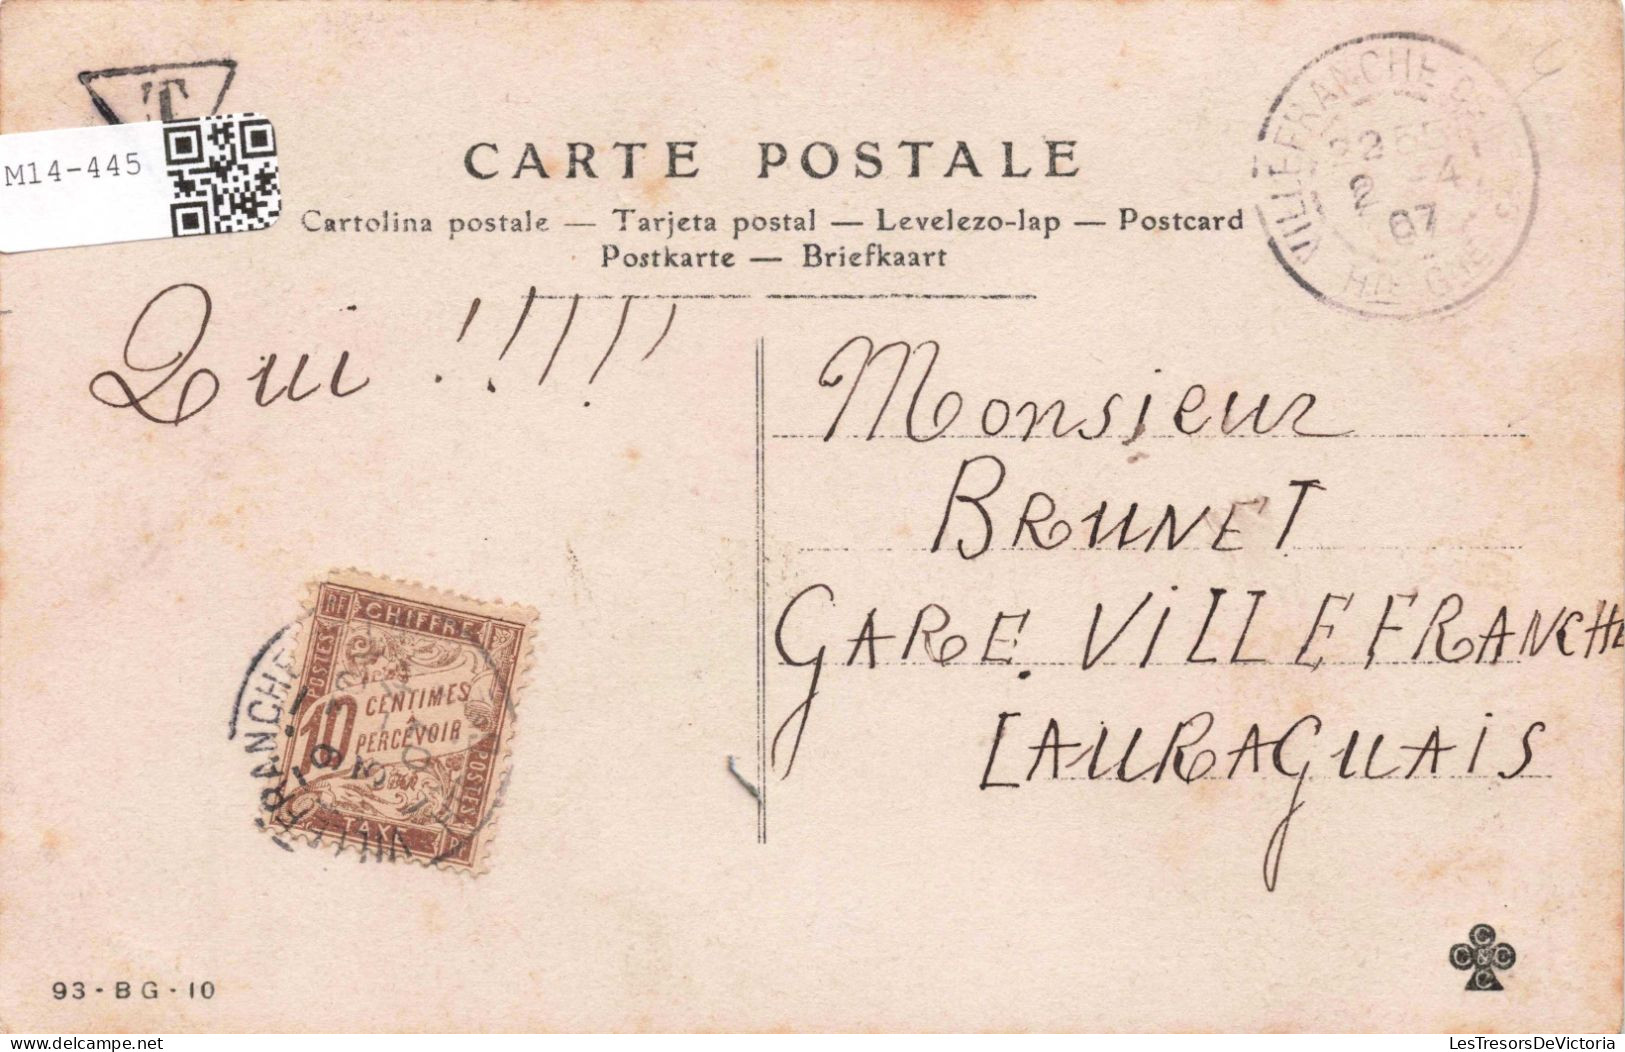 T
M14-445
CARTE POSTALE
Cartolina postale — Tarjeta postal — Levelezo-lap — Postcard
Postkarte — Briefkaart
VILLEFRANCHE DE
22
4
07
HTE
Qui !!!!!
Monsieur
BRUNET
GARE. VILLEFRANCHE
LAURAGUAIS
RF
CHIFFRE
POSTES
10
CENTIMES
À PERCEVOIR
TAXE
POSTES
RF
93 - BG - 10
C
C & C
C
LesTresorsDeVictoria